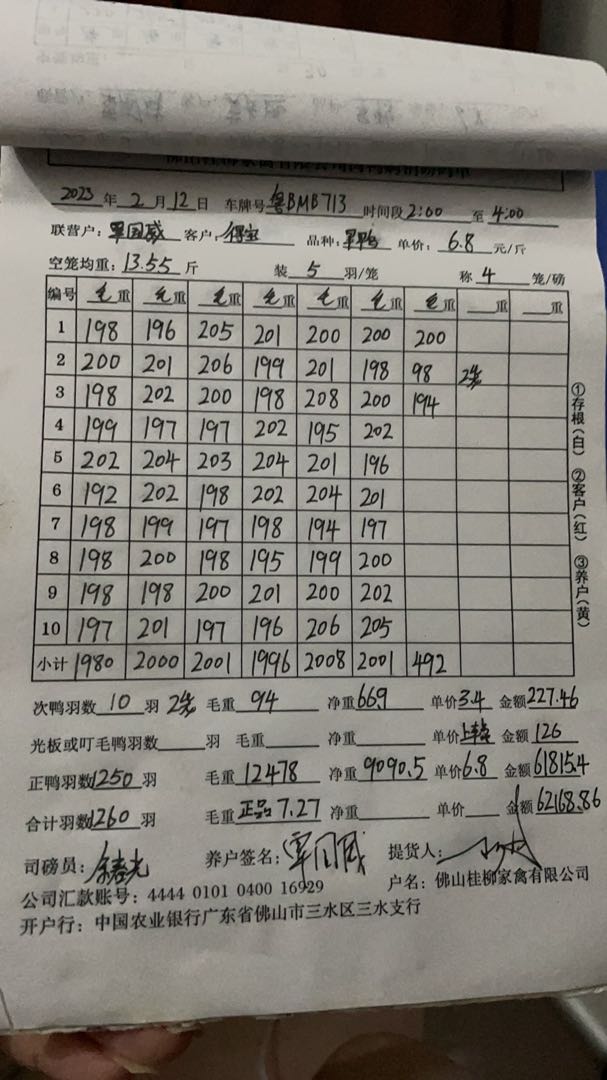 2023 年 2 月 12 日 车牌号 粤BMB713 时间段 2:00 至 4:00
联营户: 覃国威 客户: 品种: 单价: 6.8 元/斤
空笼均重: 13.55 斤 装 5 羽/笼 称 4 笼/磅
编号 毛重 毛重 毛重 毛重 毛重 毛重 毛重 重 重
1 198 196 205 201 200 200 200
2 200 201 206 199 201 198 98 2笼
3 198 202 200 198 208 200 194
4 199 197 197 202 195 202
5 202 204 203 204 201 196
6 192 202 198 202 204 201
7 198 199 197 198 194 197
8 198 200 198 195 199 200
9 198 198 200 201 200 202
10 197 201 197 196 206 205
小计 1980 2000 2001 1996 2008 2001 492
次鸭羽数 10 羽 2笼 毛重 94 净重 66.9 单价 3.4 金额 227.46
光板或叮毛鸭羽数 羽 毛重 净重 单价 金额 126
正鸭羽数 1250 羽 毛重 12478 净重 9090.5 单价 6.8 金额 61815.4
合计羽数 1260 羽 毛重 正品 7.27 净重 单价 金额 62168.86
司磅员: 养户签名: 覃国威 提货人:
公司汇款账号: 4444 0101 0400 16929 户名: 佛山桂柳家禽有限公司
开户行: 中国农业银行广东省佛山市三水区三水支行
①存根(白) ②客户(红) ③养户(黄)